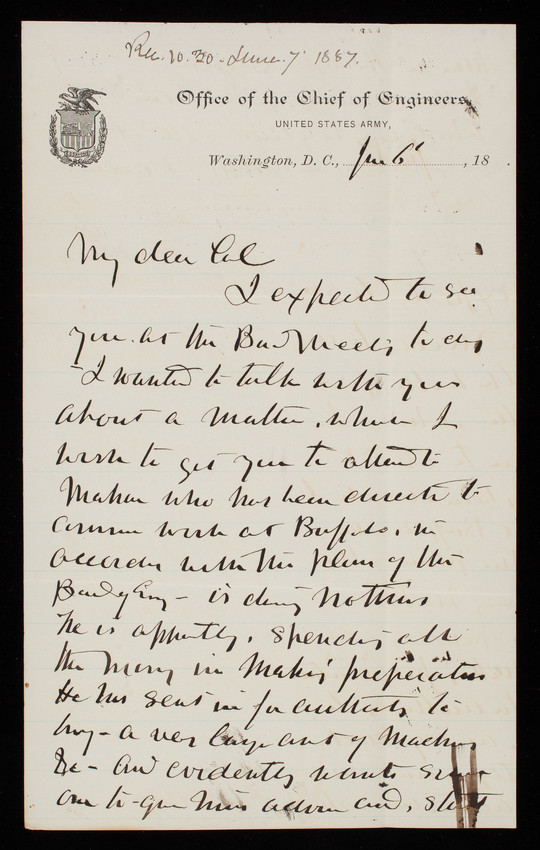 Rec. 10.30 - June. 7 1887.
Office of the Chief of Engineers,
UNITED STATES ARMY,
Washington, D. C., Jun 6 , 18 .
My dear Col
I expected to see
you at the Board Meeting to day
- I wanted to talk with you
about a matter, which I
wish to get you to attend to
Mahan who has been directed to
commence work at Buffalo, in
accordance with the plan of the
Board of Eng - is doing nothing
He is apparently, spending all
the money in making preparations
He has sent in for authority to
buy - a very large amt of Machinery
&c - and evidently wants some
one to give him advice and, start